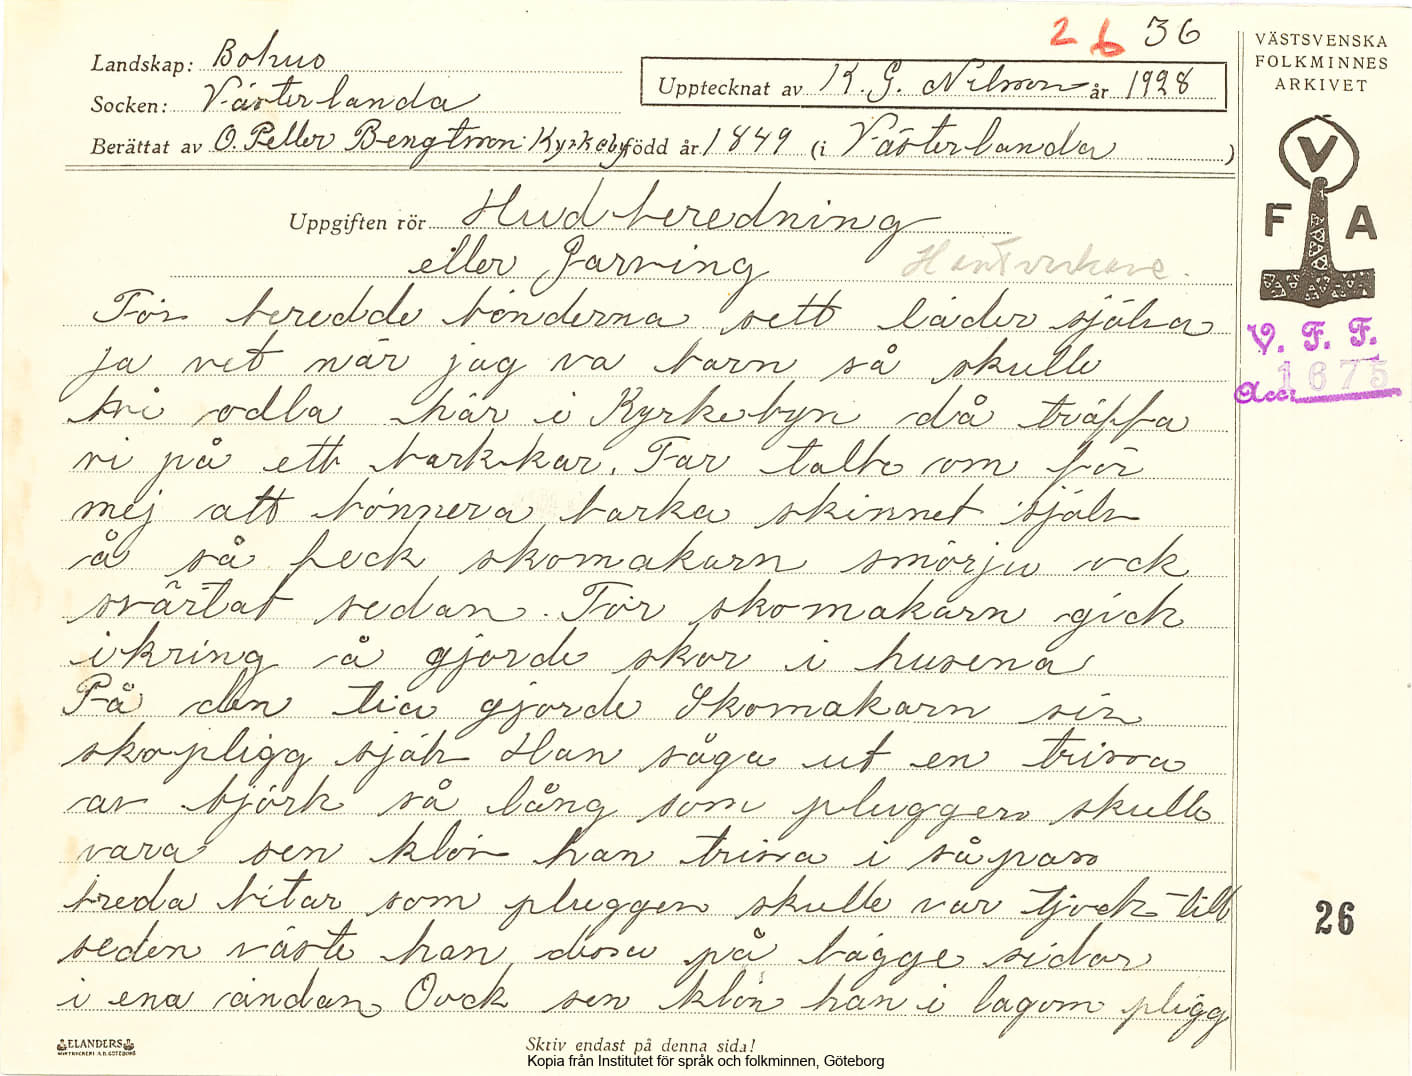 26 36
Landskap: Bohus
Socken: Västerlanda
Upptecknat av K. G. Nilsson år 1928
Berättat av O. Peller Bengtsson Kyrkeby född år 1849 (i Västerlanda )
Uppgiften rör Hudberedning
eller Garving Hantverkare.
För beredde bönderna sett läder själva
ja vet när jag va barn så skulle
vi odla här i Kyrkebyn då träffa
vi på ett barkkar. Far talte om för
mej att bönnera barka skinnet själv
å så feck skomakarn smörju ock
svärtat sedan. För skomakarn gick
ikring å gjorde skor i husena
På den tia gjorde Skomakarn sin
skopligg själv Han såga ut en trissa
av björk så lång som pluggen skulle
vara sen klöv han trissa i såpass
breda bitar som pluggen skulle var tjock till
seden väste han dissa på bägge sidor
i ena ändan Oock sen klöv han i lagom pligg
ELANDERS
BOKTRYCKERI A.B. GÖTEBORG
Skriv endast på denna sida!
Kopia från Institutet för språk och folkminnen, Göteborg
VÄSTSVENSKA
FOLKMINNES
ARKIVET
V
F A
V. F. F.
Acc. 1675
26